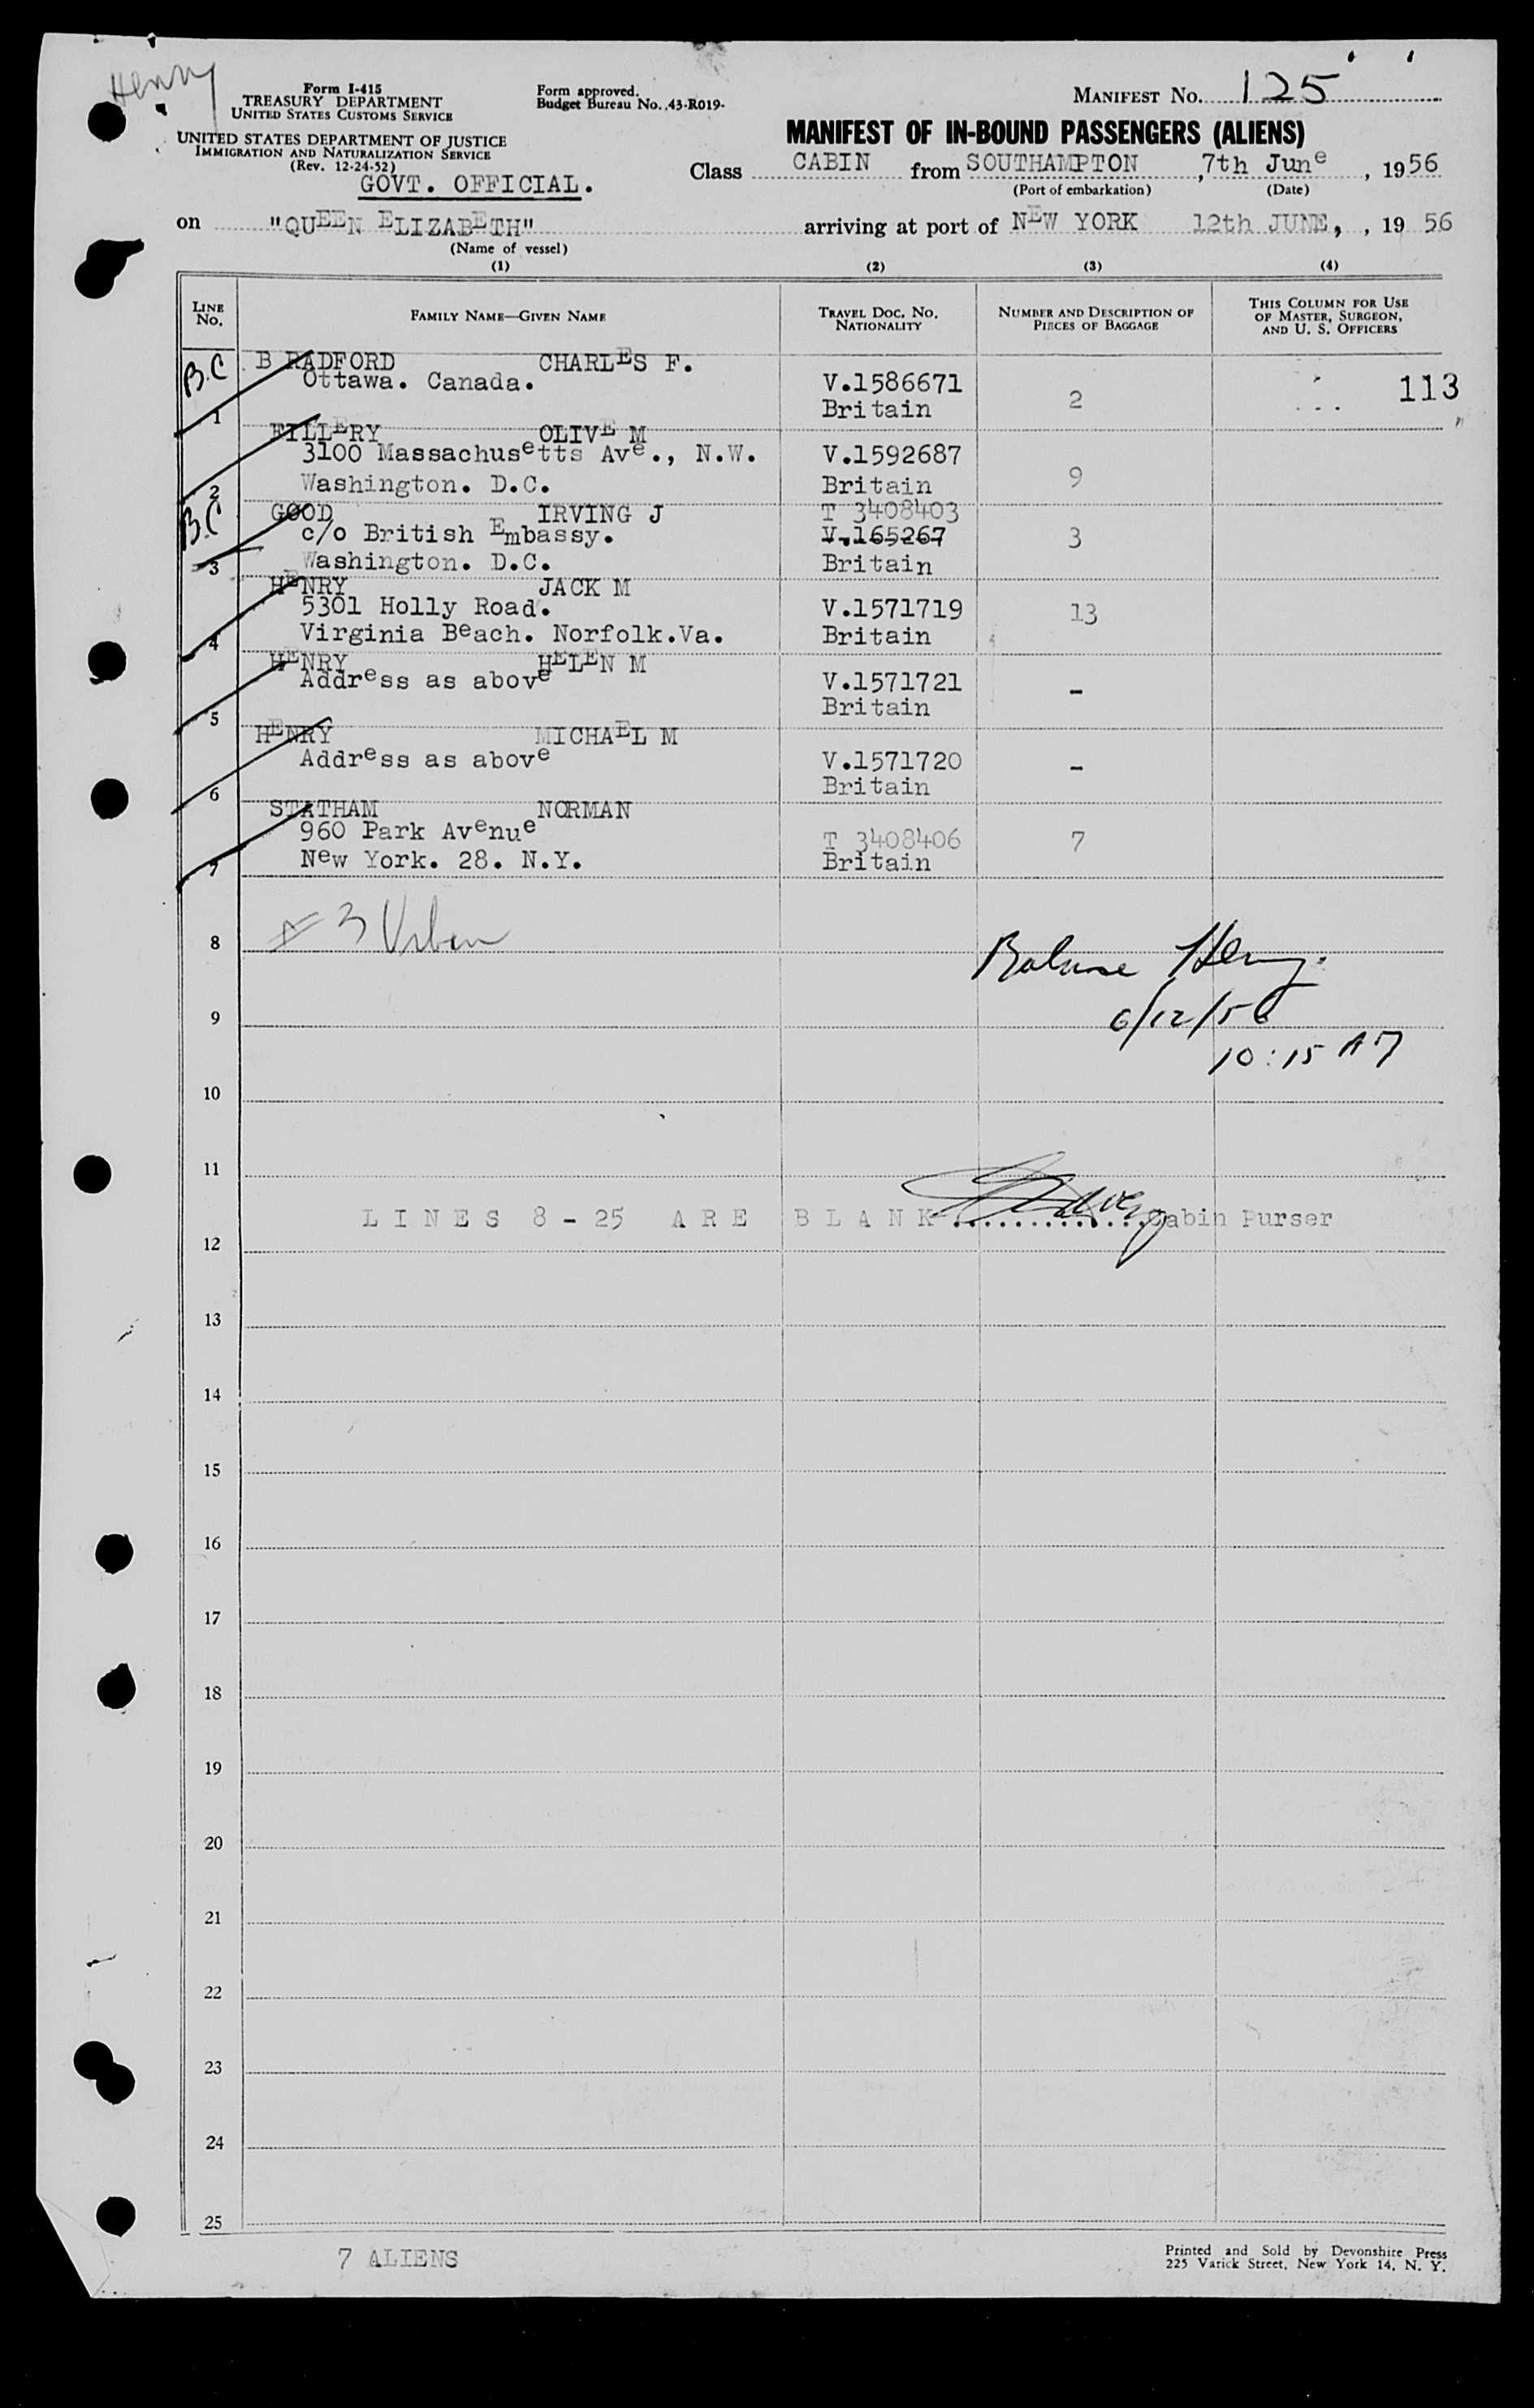 Henry
Form I-415
TREASURY DEPARTMENT
UNITED STATES CUSTOMS SERVICE
Form approved.
Budget Bureau No. 43-R019-
MANIFEST No. 125
UNITED STATES DEPARTMENT OF JUSTICE
IMMIGRATION AND NATURALIZATION SERVICE
(Rev. 12-24-52)
MANIFEST OF IN-BOUND PASSENGERS (ALIENS)
GOVT. OFFICIAL.
Class CABIN from SOUTHAMPTON, 7th June, 1956
(Port of embarkation) (Date)
on "QUEEN ELIZABETH" arriving at port of NEW YORK 12th JUNE, , 19 56
(Name of vessel)
(1) (2) (3) (4)
LINE No. FAMILY NAME—GIVEN NAME TRAVEL DOC. No. NATIONALITY NUMBER AND DESCRIPTION OF PIECES OF BAGGAGE THIS COLUMN FOR USE OF MASTER, SURGEON, AND U. S. OFFICERS
B.C B RADFORD CHARLES F.
Ottawa. Canada. V.1586671 113
1 Britain 2
FILLERY OLIVE M
3100 Massachusetts Ave., N.W. V.1592687
2 Washington. D.C. Britain 9
B.C GOOD IRVING J T 3408403
c/o British Embassy. V.165267 3
3 Washington. D.C. Britain
HENRY JACK M
5301 Holly Road. V.1571719 13
4 Virginia Beach. Norfolk.Va. Britain
HENRY HELEN M
Address as above V.1571721 -
5 Britain
HENRY MICHAEL M
Address as above V.1571720 -
6 Britain
STATHAM NORMAN
960 Park Avenue T 3408406 7
7 New York. 28. N.Y. Britain
8 3
Henry.
9 6/12/56
10:15 AM
10
11
LINES 8-25 ARE BLANK..............Cabin Purser
12
13
14
15
16
17
18
19
20
21
22
23
24
25
7 ALIENS
Printed and Sold by Devonshire Press
225 Varick Street, New York 14, N. Y.